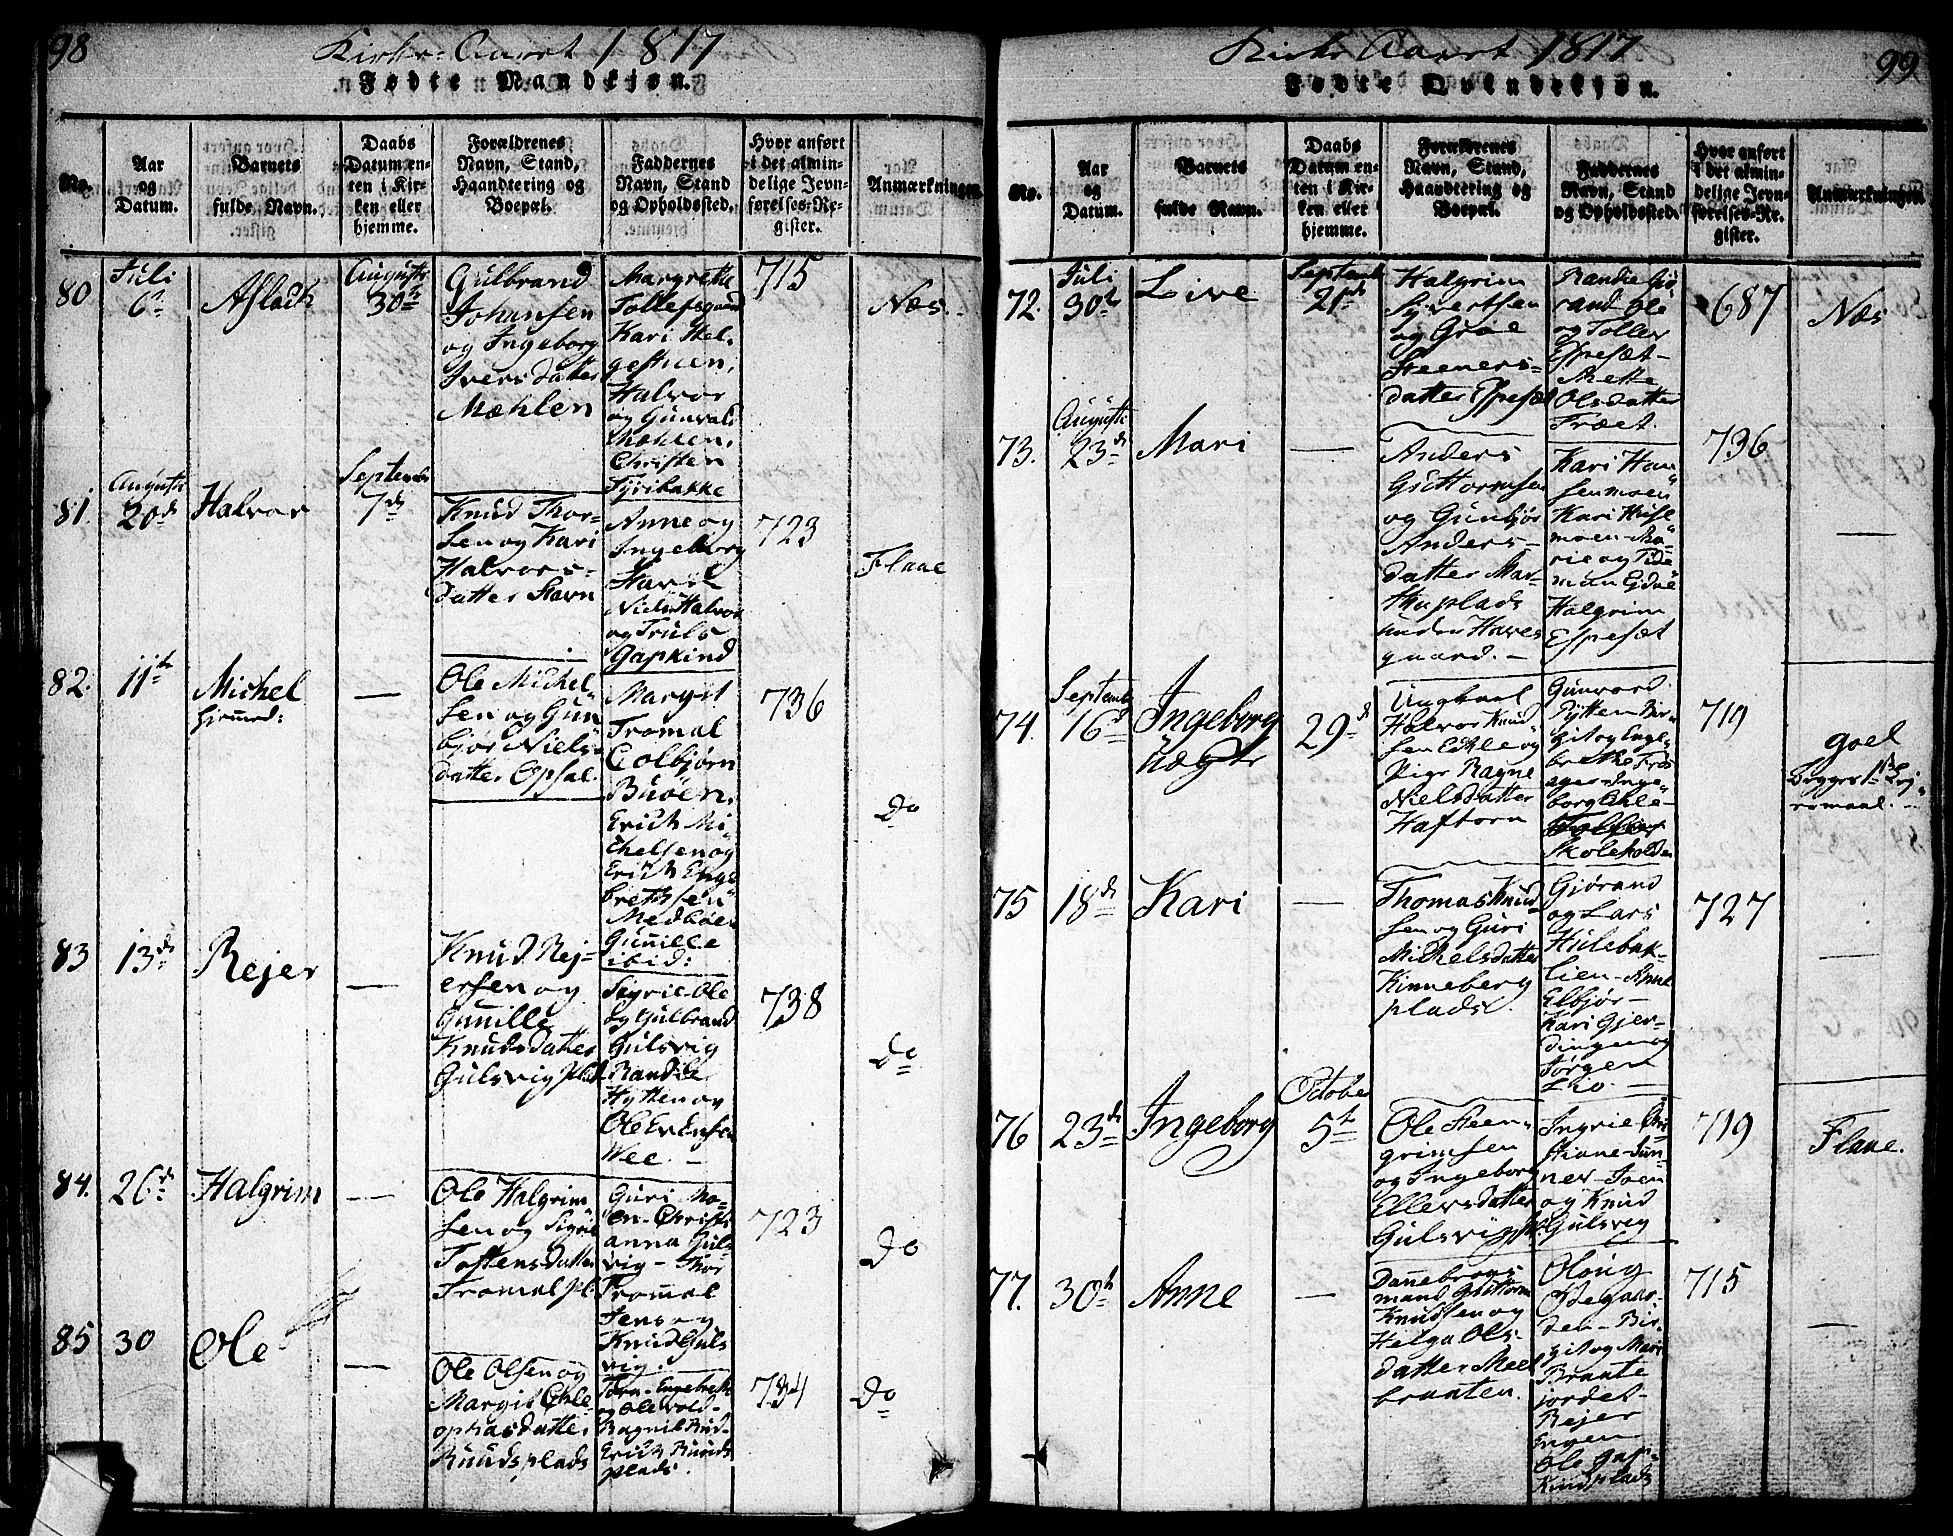 98
Kirke-Aaret 1817
Fødte Mandkjøn.
No.
Aar
og
Datum.
Barnets
fulde Navn.
Daabs
Datum en-
ten i Kir-
ken eller
hjemme.
Forældrenes
Navn, Stand,
Haandtering og
Boepæl.
Faddernes
Navn, Stand
og Opholdssted.
Hvor anført
i det almin-
delige Jevn-
førelses-Re-
gister.
Anmærkninger.
80
Juli
6
Aslack
Augusti
30
Gulbrand
Johansen
og Ingeborg
Iversdatter
Mæhlen
Margrethe
Tollefsgaard
Kari Hel-
gestuen,
Halvor
og Gunvald
Mæhlen,
Christen
Fyribakke
715
Næs.
81.
Augusti
20d
Halvor
Septembr
7d
Knud Thor-
sen og Kari
Halvors-
datter Stavn
Anne og
Ingeborg
Niels Halvor
og Truls
Gapkind
723
Flaae
82.
11te
Michel
hjemed:
—
Ole Michel-
sen og Gun
bjør Niels-
datter Opsal.
Margit
Tromal
Colbjørn
Buøen,
Erich Mi-
chelsen og
Erich Enge
bretssen
Medbøen
Gunille
ibid:
736
Do
83
13d
Rejer
—
Knud Rej-
ersen og
Gunille
Knudsdatter
Gulsvig plads
Sigrie Ole
og Gulbrand
Gulsvig
Randile
Hytten og
Ole Evensen
Wee. —
738
Do
84.
26d
Halgrim
—
Ole Halgrim
sen og Sigrie
Tostensdatter
Tromal pl.
Guri Mo-
en - Christi
anna Guls
vig - Thor
Tromal
Jens og
Knud Guls
vig.
723
Do
85
30
Ole
—
Ole Olsen og
Margit Ehle-
ophasdatter
Ruudsplads
Engebreth
og Ole Wold-
Ragnil Ruud-
Erich Ruuds
plads.
734
Do
99
Kirke Aaret 1817
Fødte Qvindekjøn.
No.
Aar
og
Datum.
Barnets
fulde Navn.
Daabs
Datum en-
ten i Kir-
ken eller
hjemme.
Forældrenes
Navn, Stand,
Haandtering og
Boepæl.
Faddernes
Navn, Stand
og Opholdssted.
Hvor anført
i det almin-
delige Jevn-
førelses-Re-
gister.
Anmærkninger.
72.
Juli
30
Live
Septemb
21d
Halgrim
Syvertsen
og Groe
Steeners-
datter Espesæt
Randie Gjø
rand Ole
og Tollev
Espesæt-
Mette
Olsdatter
Fræet.
687
Næs
73.
Augusti
23d
Mari
—
Anders
Guttormsen
og Gunbjør
Anders-
datter Mar-
thaplads
under Haves
gaard. —
Kari Han
senmoen
Kari
moen-Ma-
rie og Tide
man Eidal
Halgrim
Espesæt
736
—
74.
Septemb
16d
Ingeborg
Uægte
29d
Ungkaal
Halvor Knud
sen Ehle og
Pige Ragne
Nielsdatter
Haftorn
Gunvord
Pytten Bir-
git og Enge-
brethe Fros
ager-Inge-
borg Ehle-
Skoleholder
719
Goel
Begges 1ste Lej-
ermaal. —
75
18d
Kari
—
Thomas Knud
sen og Guri
Michelsdatter
Kinneberg
plads.
Gjørand
og Lars
Hulebak-
lien - Anne
Elbjør-
Kari Gjer-
dingen og
Jørgen
Lio. —
727
—
76
23d
Ingeborg
Octobe
5t
Ole Steen-
grimsen
og Ingeborg
Ellersdatter
Gulsvig pl.
Ingrie Chri-
stiane Sun-
ner-Iven
og Knud
Gulsvig
719
Flaae.
77.
30t
Anne
—
Dannebrogs
mand Guttorm
Knudsen og
Helga Ols-
datter Meel
braaten.
Oloug
Ødegaar-
den - Bir-
git og Mari
Braate
jordet-
Rejer
Engen
Ole Gap-
kindplads
715
—